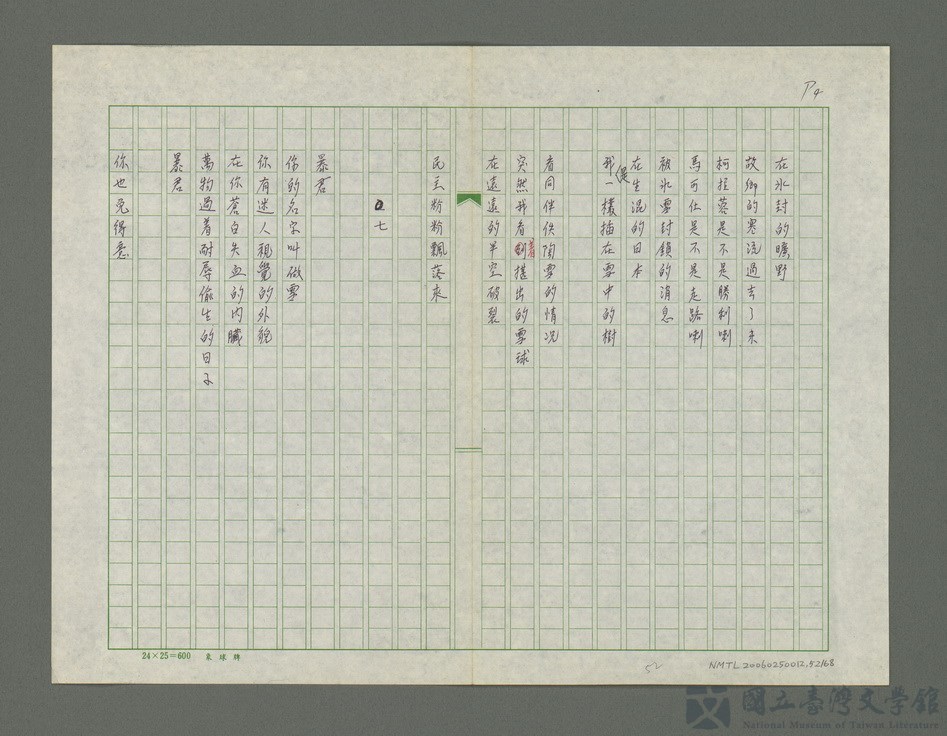 P4
在冰封的曠野
故鄉的寒流過去了未
柯拉蓉是不是勝利喇
馬可仕是不是走路喇
被冰雪封鎖的消息
在生混的日本
我一樣插在雪中的樹
看同伴供陶雪的情況
突然我看著搓出的雪球
在遠遠的半空破裂
民主粉粉飄落來
七
暴君
你的名字叫做雪
你有迷人視覺的外貌
在你蒼白失血的內臟
萬物過着耐辱偷生的日子
暴君
你也免得意
24×25=600 象球牌
52
NMTL20060250012,52/68
國立臺灣文學館
National Museum of Taiwan Literature